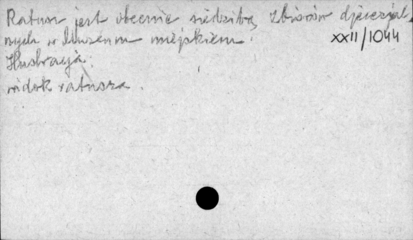 Ratusz jest obecnie siedzibą zbiorów diecezjal-
nych w Muzeum miejskiem.
XXII/1044
Ilustracja:
widok ratusza.